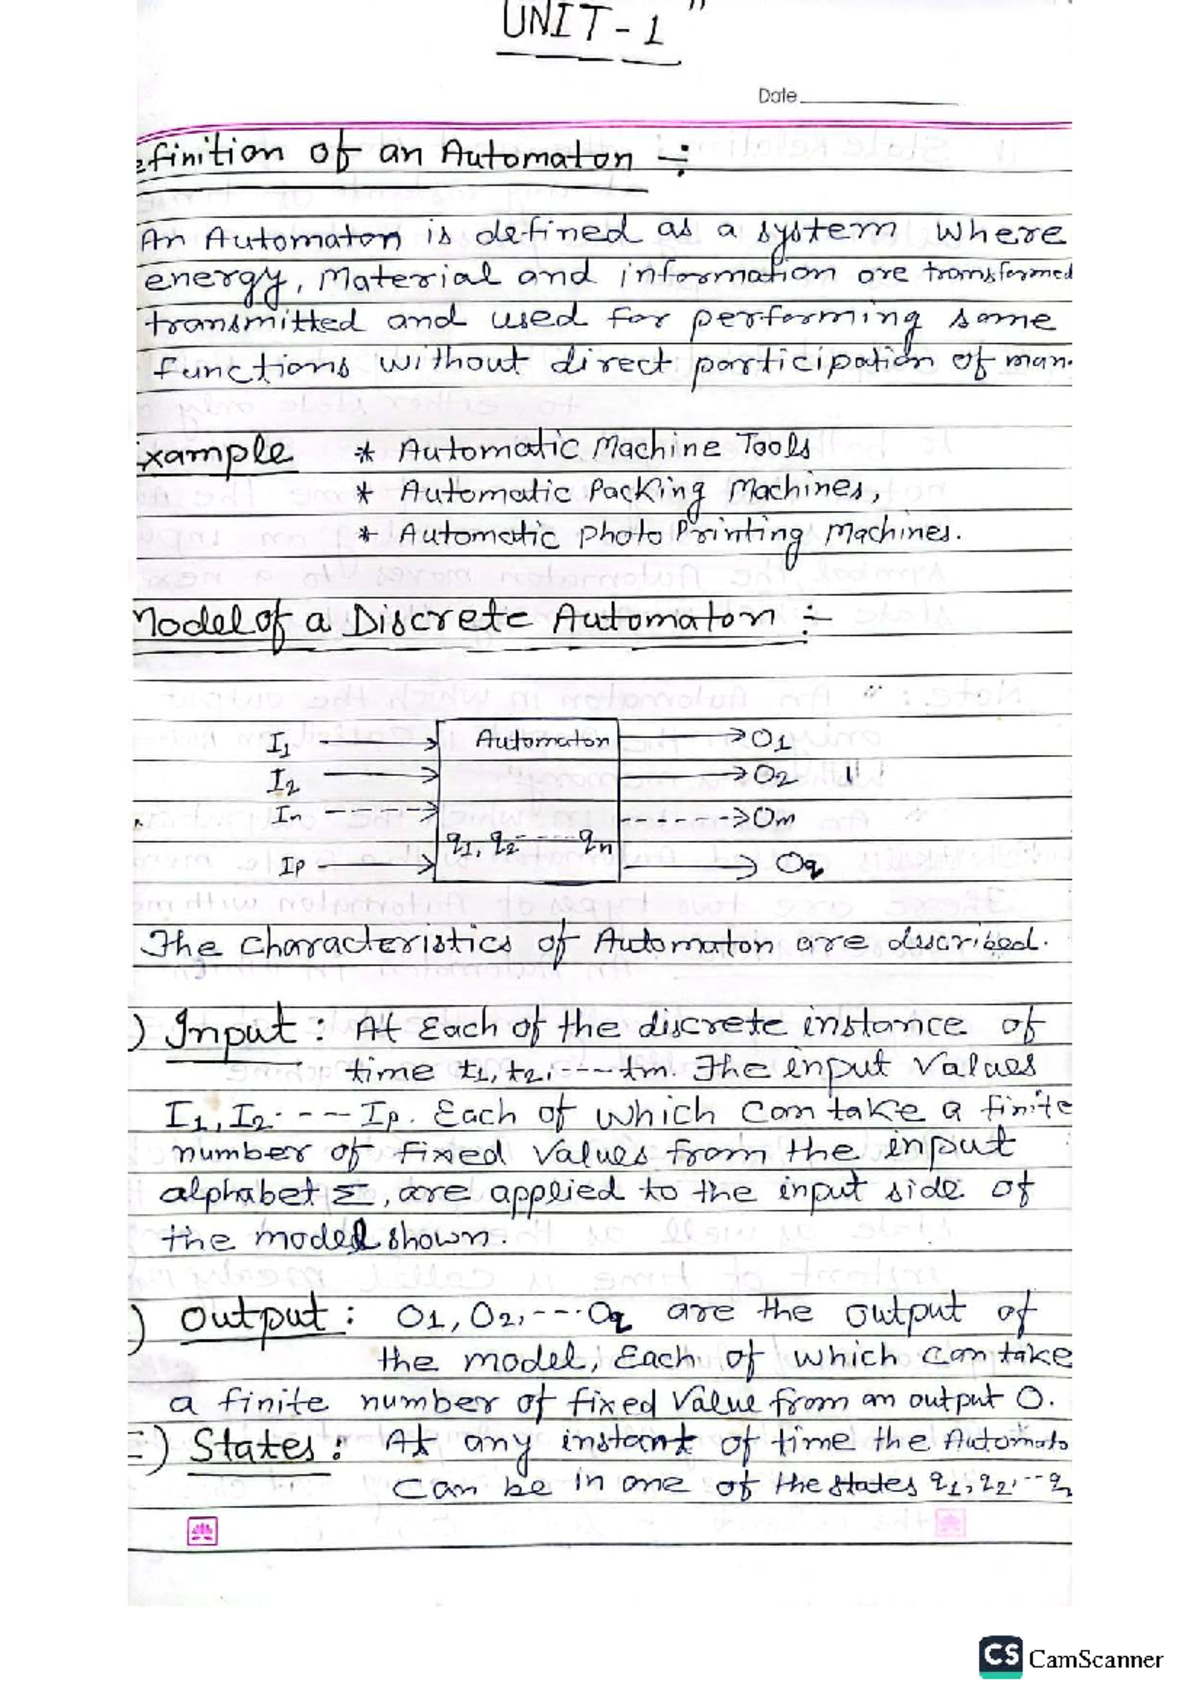 UNIT-1"
Date
efinition of an Automaton :-
An Automaton is defined as a system where
energy, Material and information are transformed
transmitted and used for performing some
functions without direct participation of man.
xample * Automatic Machine Tools
* Automatic Packing Machines,
* Automatic photo Printing Machines.
Model of a Discrete Automaton :-
I1 Automaton O1
I2 O2
In Om
q1, q2 ---- qn
Ip Oq
The characteristics of Automaton are discribed.
) Input : At Each of the discrete instance of
time t1, t2, --- tm. The input values
I1, I2 --- Ip. Each of which can take a finite
number of fixed values from the input
alphabet Σ, are applied to the input side of
the model shown.
) output : O1, O2, --- Oq are the output of
the model, Each of which can take
a finite number of fixed value from an output O.
) States : At any instant of time the Automato
can be in one of the states q1, q2, -- q
CS CamScanner